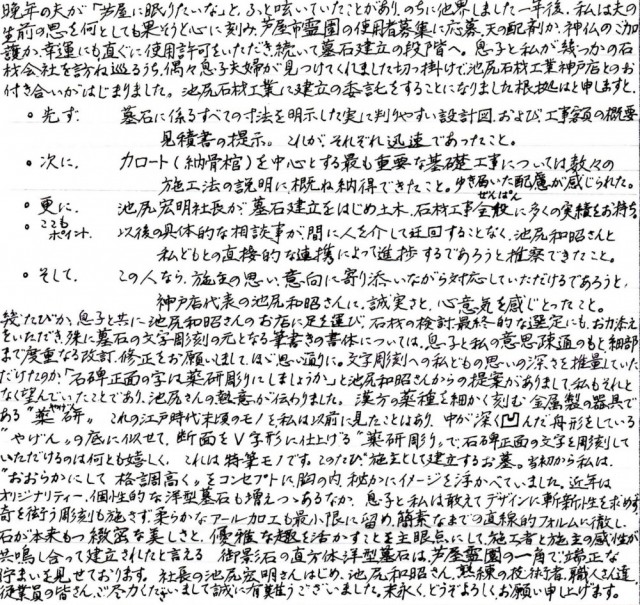 晩年の夫が「芦屋に眠りたいな」と、ふと呟いていたことがあり、のちに他界しました一年後、私は夫の
生前の思を何としても果そうと心に刻み芦屋市霊園の使用者募集に応募、天の配剤か神仏のご加
護か、幸運にも直ぐに使用許可をいただき続いて墓石建立の段階へ。息子と私が幾つかの石
材会社を訪ね巡るうち、偶々息子夫婦が見つけてくれました切っ掛けで池尻石材工業神戸店とのお
付き合いがはじまりました。池尻石材工業に建立の委託をすることになりました根拠はと申しますと、
・先ず、 墓石に係るすべての寸法を明示した実に判りやすい設計図、および工事額の概要
見積書の提示。これが、それぞれ迅速であったこと。
・次に、 カロート(納骨棺)を中心とする最も重要な基礎工事については数々の
施工法の説明に、概ね納得できたこと。ゆき届いた配慮が感じられた。
・更に、 池尻宏明社長が墓石建立をはじめ土木、石材工事全般に多くの実績をお持ち
ぜんぱん
・ここも ポイント、 以後の具体的な相談事が間に人を介して迂回することなく、池尻和昭さんと
私どもとの直接的な連携によって進捗するであろうと推察できたこと。
・そして、 この人なら、施主の思い、意向に寄り添いながら対応していただけるであろうと、
神戸店代表の池尻和昭さんに、誠実さと、心意気を感じとったこと。
幾たびか、息子と共に池尻和昭さんのお店に足を運び、石材の検討最終的な選定にも、お力添え
をいただき、殊に墓石の文字彫刻の元となる筆書きの書体については、息子と私の意思疎通のもと、細部
まで度重なる改訂、修正をお願いしまして、ほゞ思い通りに。文字彫刻への私どもの思いの深さを推量していた
だけたのか「石碑正面の字は薬研彫りにしましょうか」と池尻和昭さんからの提案がありまして私もそれと
なく望んでいたことであり、池尻さんの熱意が伝わりました。漢方の薬種を細かく刻む金属製の器具で
ある〝薬研〟これの江戸時代末頃のモノを、私は以前に見たことはあり、中が深く凹んだ舟形をしている
やげん
〝やげん〟の底に似せて、断面をV字形に仕上げる〝薬研彫り〟で、石碑正面の文字を彫刻して
いただけるのは何とも嬉しく、これは特筆モノです。このたび〝施主として建立するお墓〟当初から私は、
〝おおらかにして 格調高く〟をコンセプトに胸の内、秘かにイメージを浮かべていました。近年は
オリジナリティー、個性的な洋型墓石も増えつゝあるなか、息子と私は敢えてデザインに斬新性を求めず
奇を衒う彫刻も施さず、柔らかなアール加工も最小限に留め、簡素なまでの直線的フォルムに徹し、
石が本来もつ緻密な美しさと、優雅な趣を活かすことを主眼点にして、施工者と施主の感性が
共鳴し合って建立されたと言える 御影石の直方体洋型墓石は、芦屋霊園の一角で端正な
佇まいを見せております。社長の池尻宏明さんはじめ、池尻和昭さん、熟練の技術者、職人さん達、
従業員の皆さん、ご尽力くださいまして誠に有難うございました。末永く、どうぞよろしくお願い申し上げます。